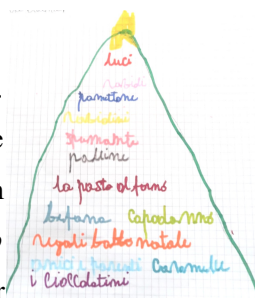 luci
panettone
spumante
palline
la pasta al forno
befana capodanno
regali babbo natale
amici e parenti caramelle
i cioccolatini